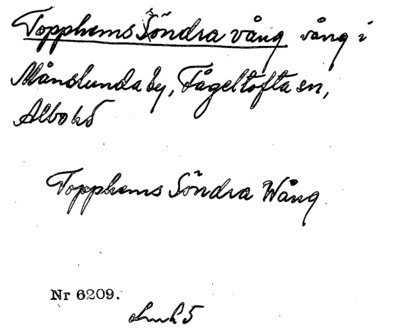 Topphems Söndra vång vång i
Månslunda by, Fågeltofta sn,
Albo hd
Topphems Söndra Wång
Nr 6209.